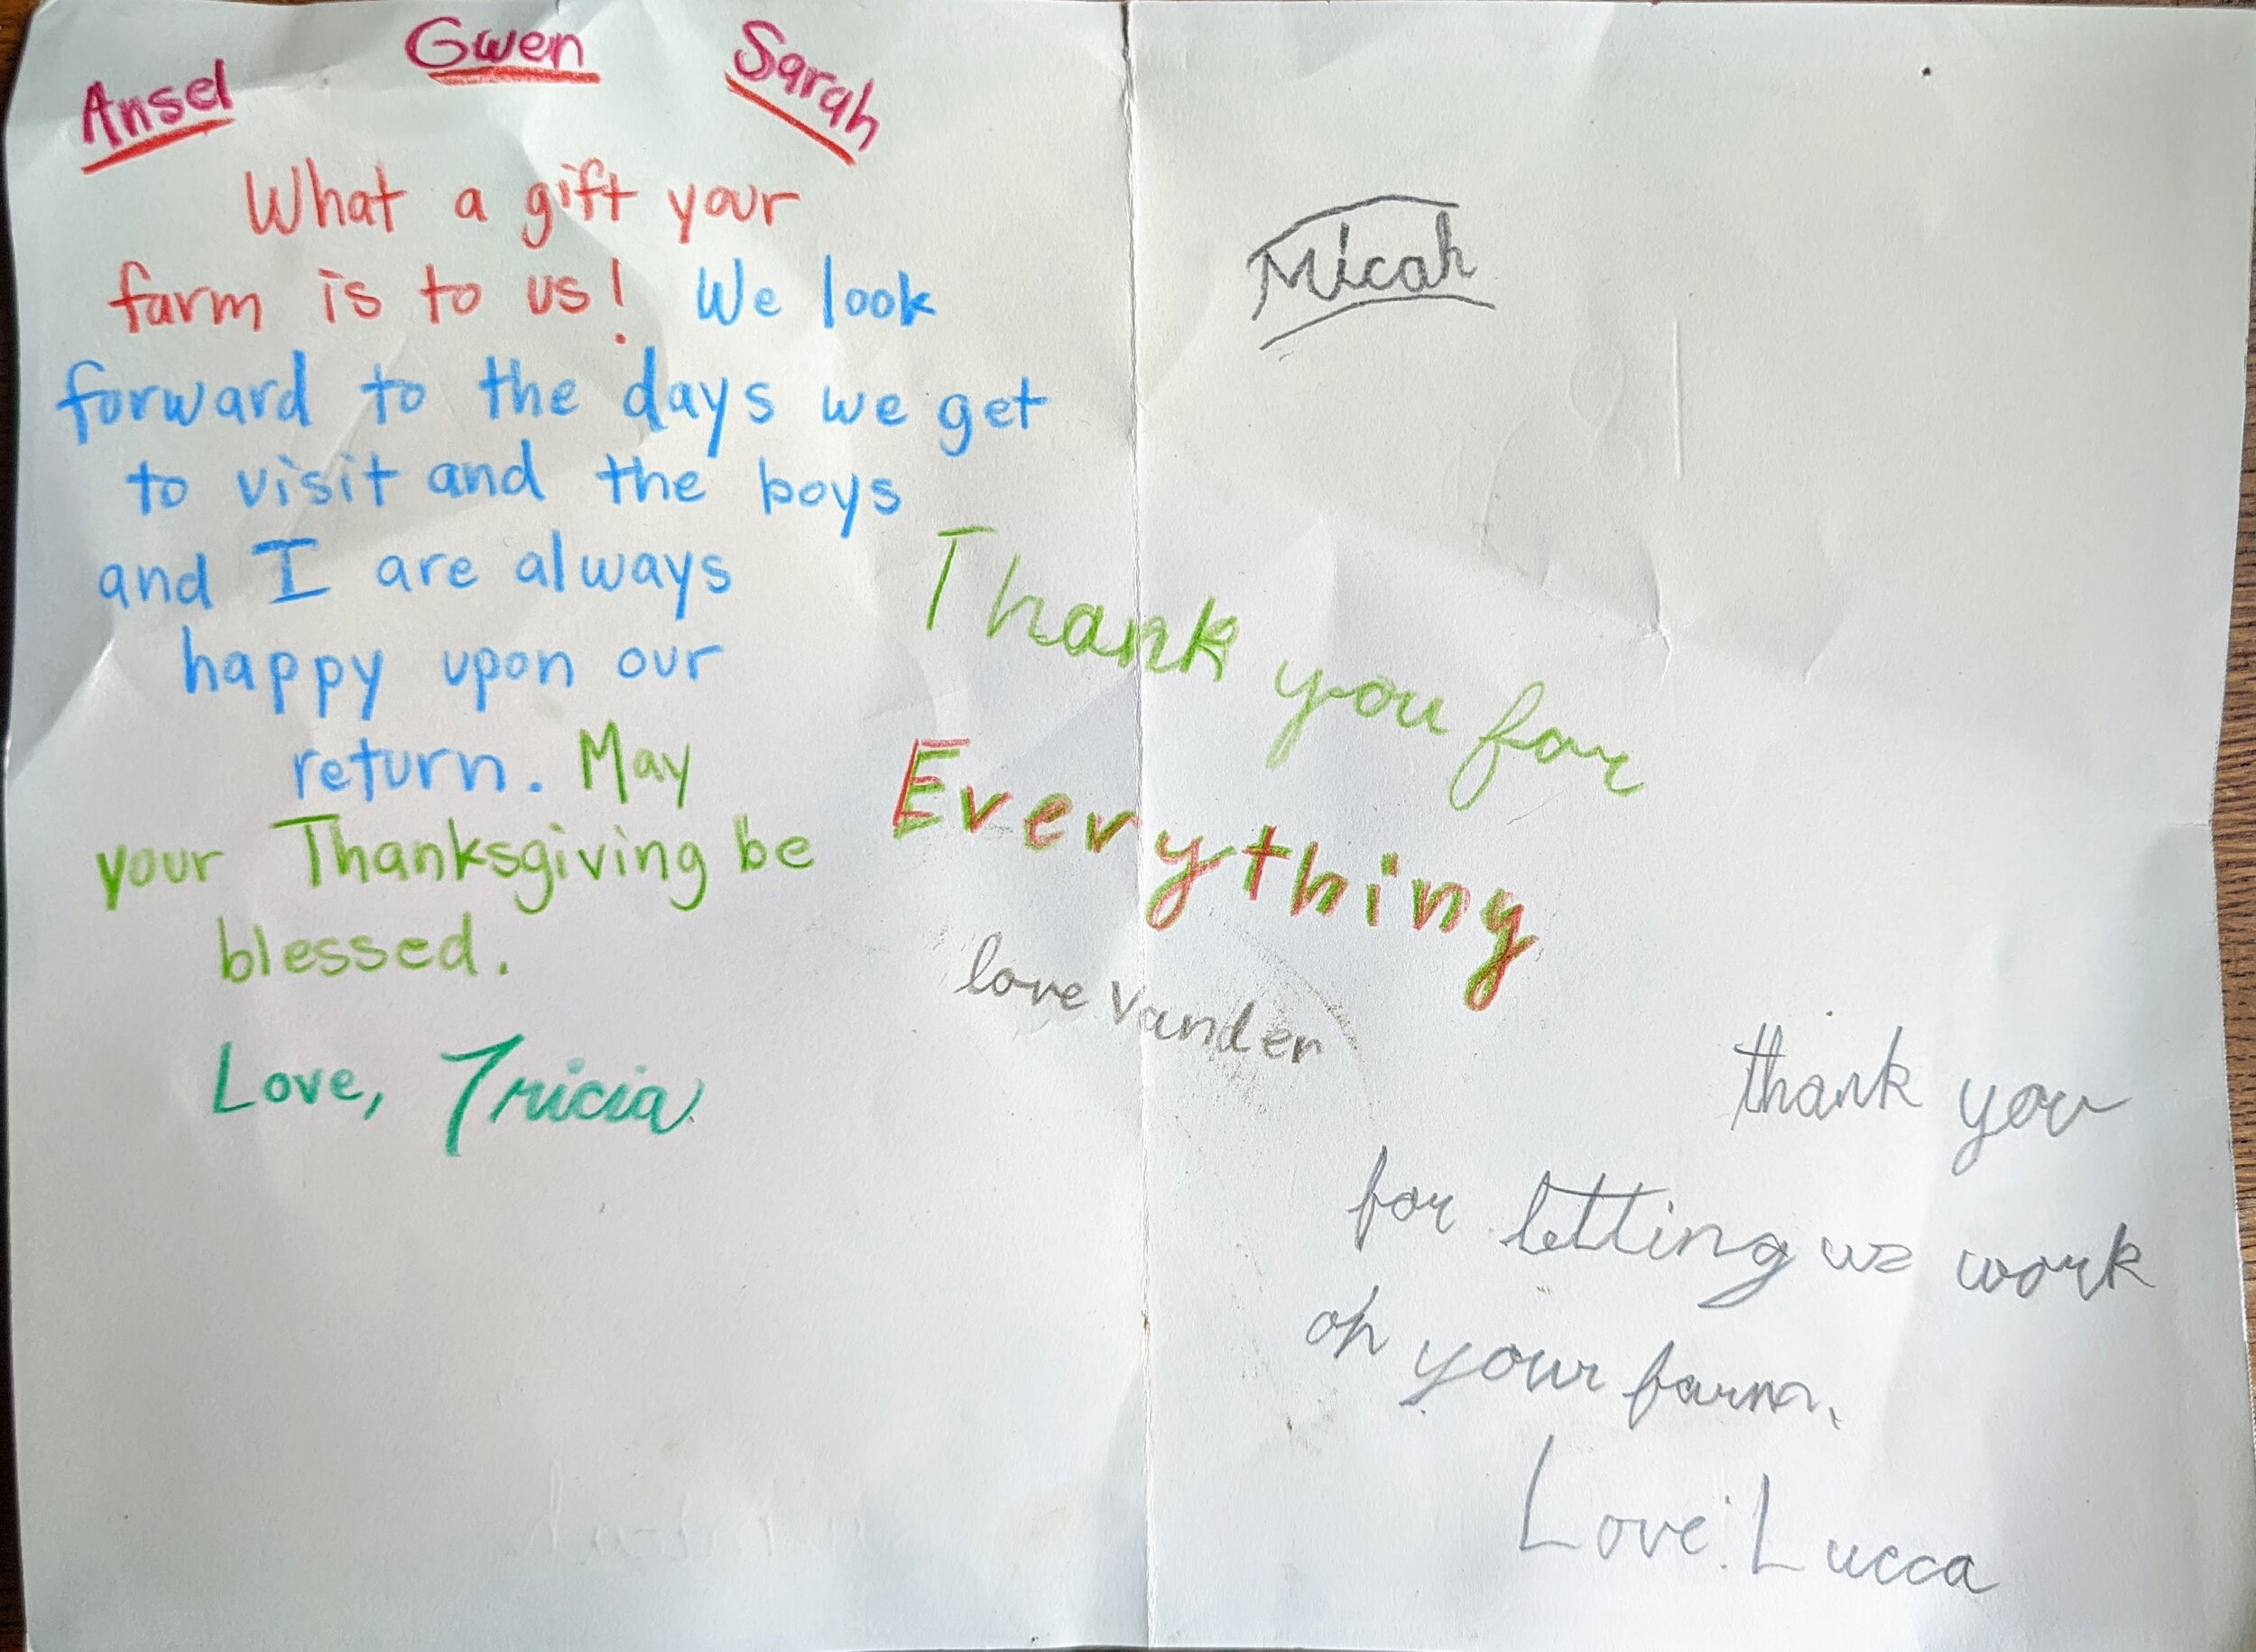 Ansel Gwen Sarah
What a gift your
farm is to us! We look
forward to the days we get
to visit and the boys
and I are always
happy upon our
return. May
your Thanksgiving be
blessed.
Love, Tricia
Micah
Thank you for
Everything
love Vander
thank you
for letting us work
on your farm.
Love: Lucca